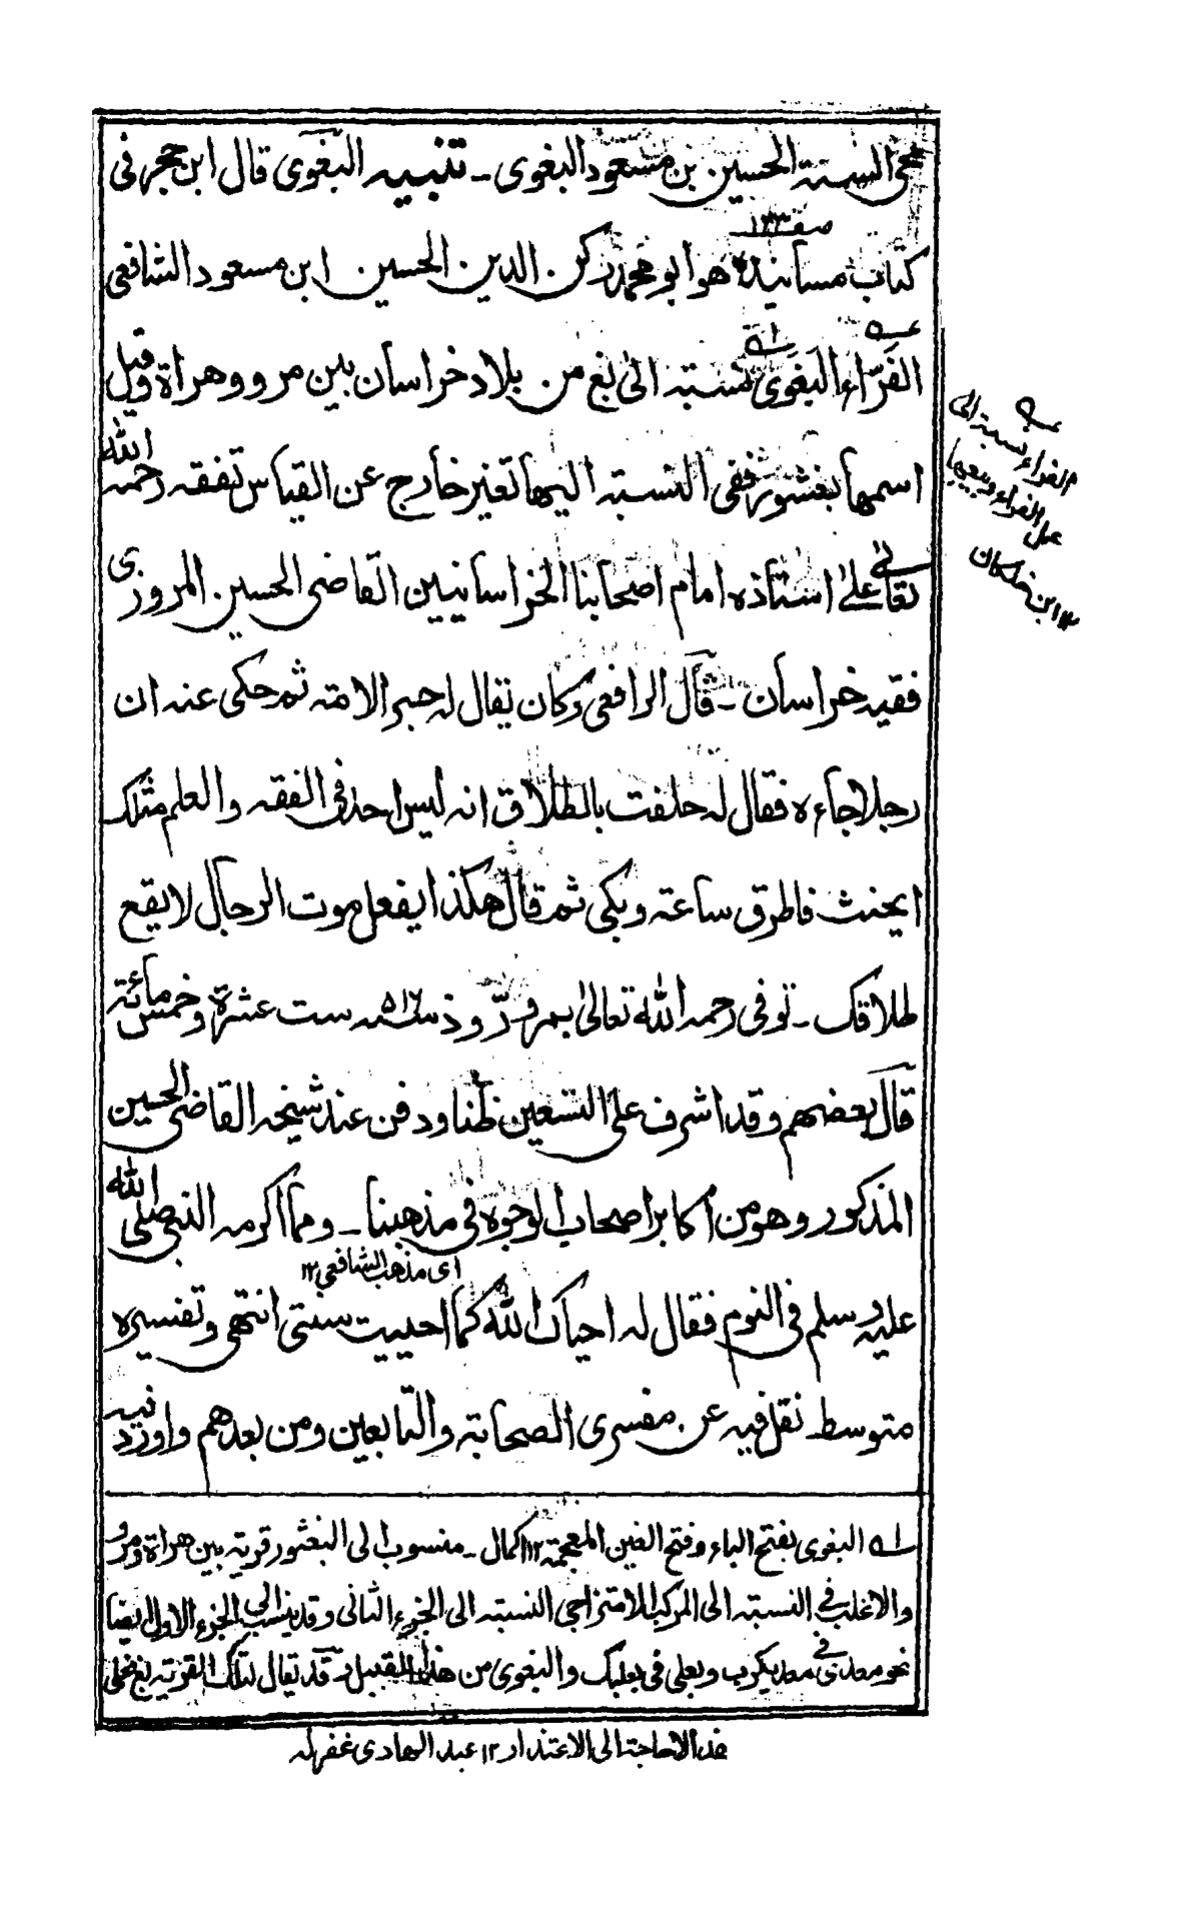 محی السنۃ الحسین بن مسعود البغوی۔ تنبیہ البغوی قال ابن حجر فی
صفہ ۱۲۳
کتاب مسانیدہ ھو ابو محمد رکن الدین الحسین ابن مسعود الشافعی
الفرّاء البغوی نسبتہ الیٰ بغ من بلاد خراسان بین مرو وھراۃ وقیل
اسمھا بغشور ففی النسبتہ الیھا تغیر خارج عن القیاس تفقہ رحمہ اللہ
تعالیٰ علیٰ استاذہ امام اصحابنا الخراسانیین القاضی الحسین المروزی
فقیہ خراسان۔ قال الرافعی وکان یقال لہ حبر الامتہ ثم حکی عنہ ان
رجلا جاءہ فقال لہ حلفت بالطلاق انہ لیس احد فی الفقہ والعلم مثلک
ایحنث فاطرق ساعتہ وبکی ثم قال ھکذا یفعل موت الرجال لا یقع
طلاقک۔ توفی رحمہ اللہ تعالیٰ بمرو رّوذ سنہ ۵۱۶ ست عشرۃ وخمس مائتہ
قال بعضھم وقد اشرف علی التسعین ظنا ودفن عند شیخہ القاضی الحسین
المذکور وھو من اکابر اصحاب الوجوہ فی مذھبنا۔ ومما اکرمہ النبی صلی اللہ
ای مذھب الشافعی ۱۲
علیہ وسلم فی النوم فقال لہ احیاک اللہ کما احییت سنتی انتھی وتفسیرہ
متوسط نقل فیہ عن مفسری الصحابتہ والتابعین ومن بعدھم واورد فیہ
الفراء نسبۃ الی
عمل الفراء وبیعھا
۱۲ ابن خلکان
لہ البغوی بفتح الباء وفتح الغین المعجمۃ ۱۲ اکمال۔ منسوب الی البغثور قریتہ بین ھراۃ ومرو
والاغلب فی النسبتہ الی المرکب الامتزاجی النسبتہ الی الجزء الثانی وقد ینسب الی الجزء الاول ایضا
نحو معدی فی معدیکرب وبعلی فی بعلبک والبغوی من ھذا القبیل وقد یقال لتلک القریتہ بغ فعلی
ھذا لا حاجتہ الی الاعتذار ۱۲ عبد الھادی غفرلہ